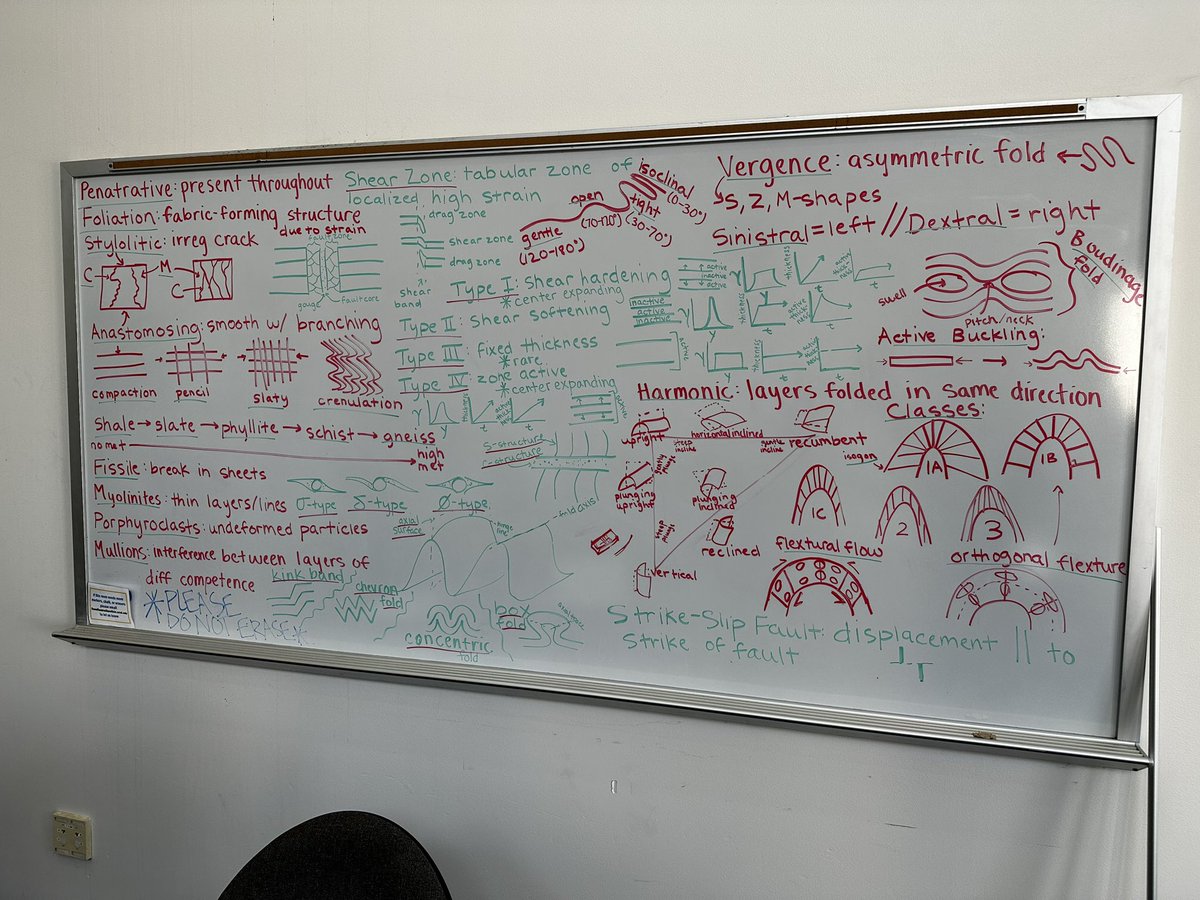 Penatrative: present throughout
Foliation: fabric-forming structure
due to strain
Stylolitic: irreg crack
C
M
C
fault zone
gouge
fault core
Anastomosing: smooth w/ branching
compaction
pencil
slaty
crenulation
Shale → slate → phyllite → schist → gneiss
no met
high
met
Fissile: break in sheets
Myolinites: thin layers/lines
σ-type
δ-type
Ø-type
Porphyroclasts: undeformed particles
Mullions: interference between layers of
diff competence
*PLEASE
DO NOT ERASE*
kink band
chevron
fold
concentric
fold
box
fold
axial
surface
hinge
line
fold axis
Shear Zone: tabular zone of
localized high strain
drag zone
shear zone
drag zone
shear
band
gentle
(120-180°)
open
(70-120°)
tight
(30-70°)
isoclinal
(0-30°)
Type I: shear hardening
*center expanding
active
inactive
active
γ
y
thickness
t
active
thick
ness
t
Type II: shear softening
inactive
active
inactive
γ
y
thickness
t
active
thick
ness
t
Type III: fixed thickness
*rare
active
γ
y
thickness
t
t
Type IV: zone active
*center expanding
γ
y
thickness
t
active
thick
ness
t
active
S-structure
C-structure
Vergence: asymmetric fold
S, Z, M-shapes
Sinistral = left // Dextral = right
Boudinage
fold
swell
pitch/neck
Active Buckling:
Harmonic: layers folded in same direction
upright
steep
incline
horizontal inclined
gentle
incline
recumbent
gently
plunge
plunging
upright
plunging
inclined
steep
plunge
reclined
vertical
Classes:
isogon
1A
1B
1C
2
3
flextural flow
orthogonal flexture
Strike-Slip Fault: displacement || to
Strike of fault
T